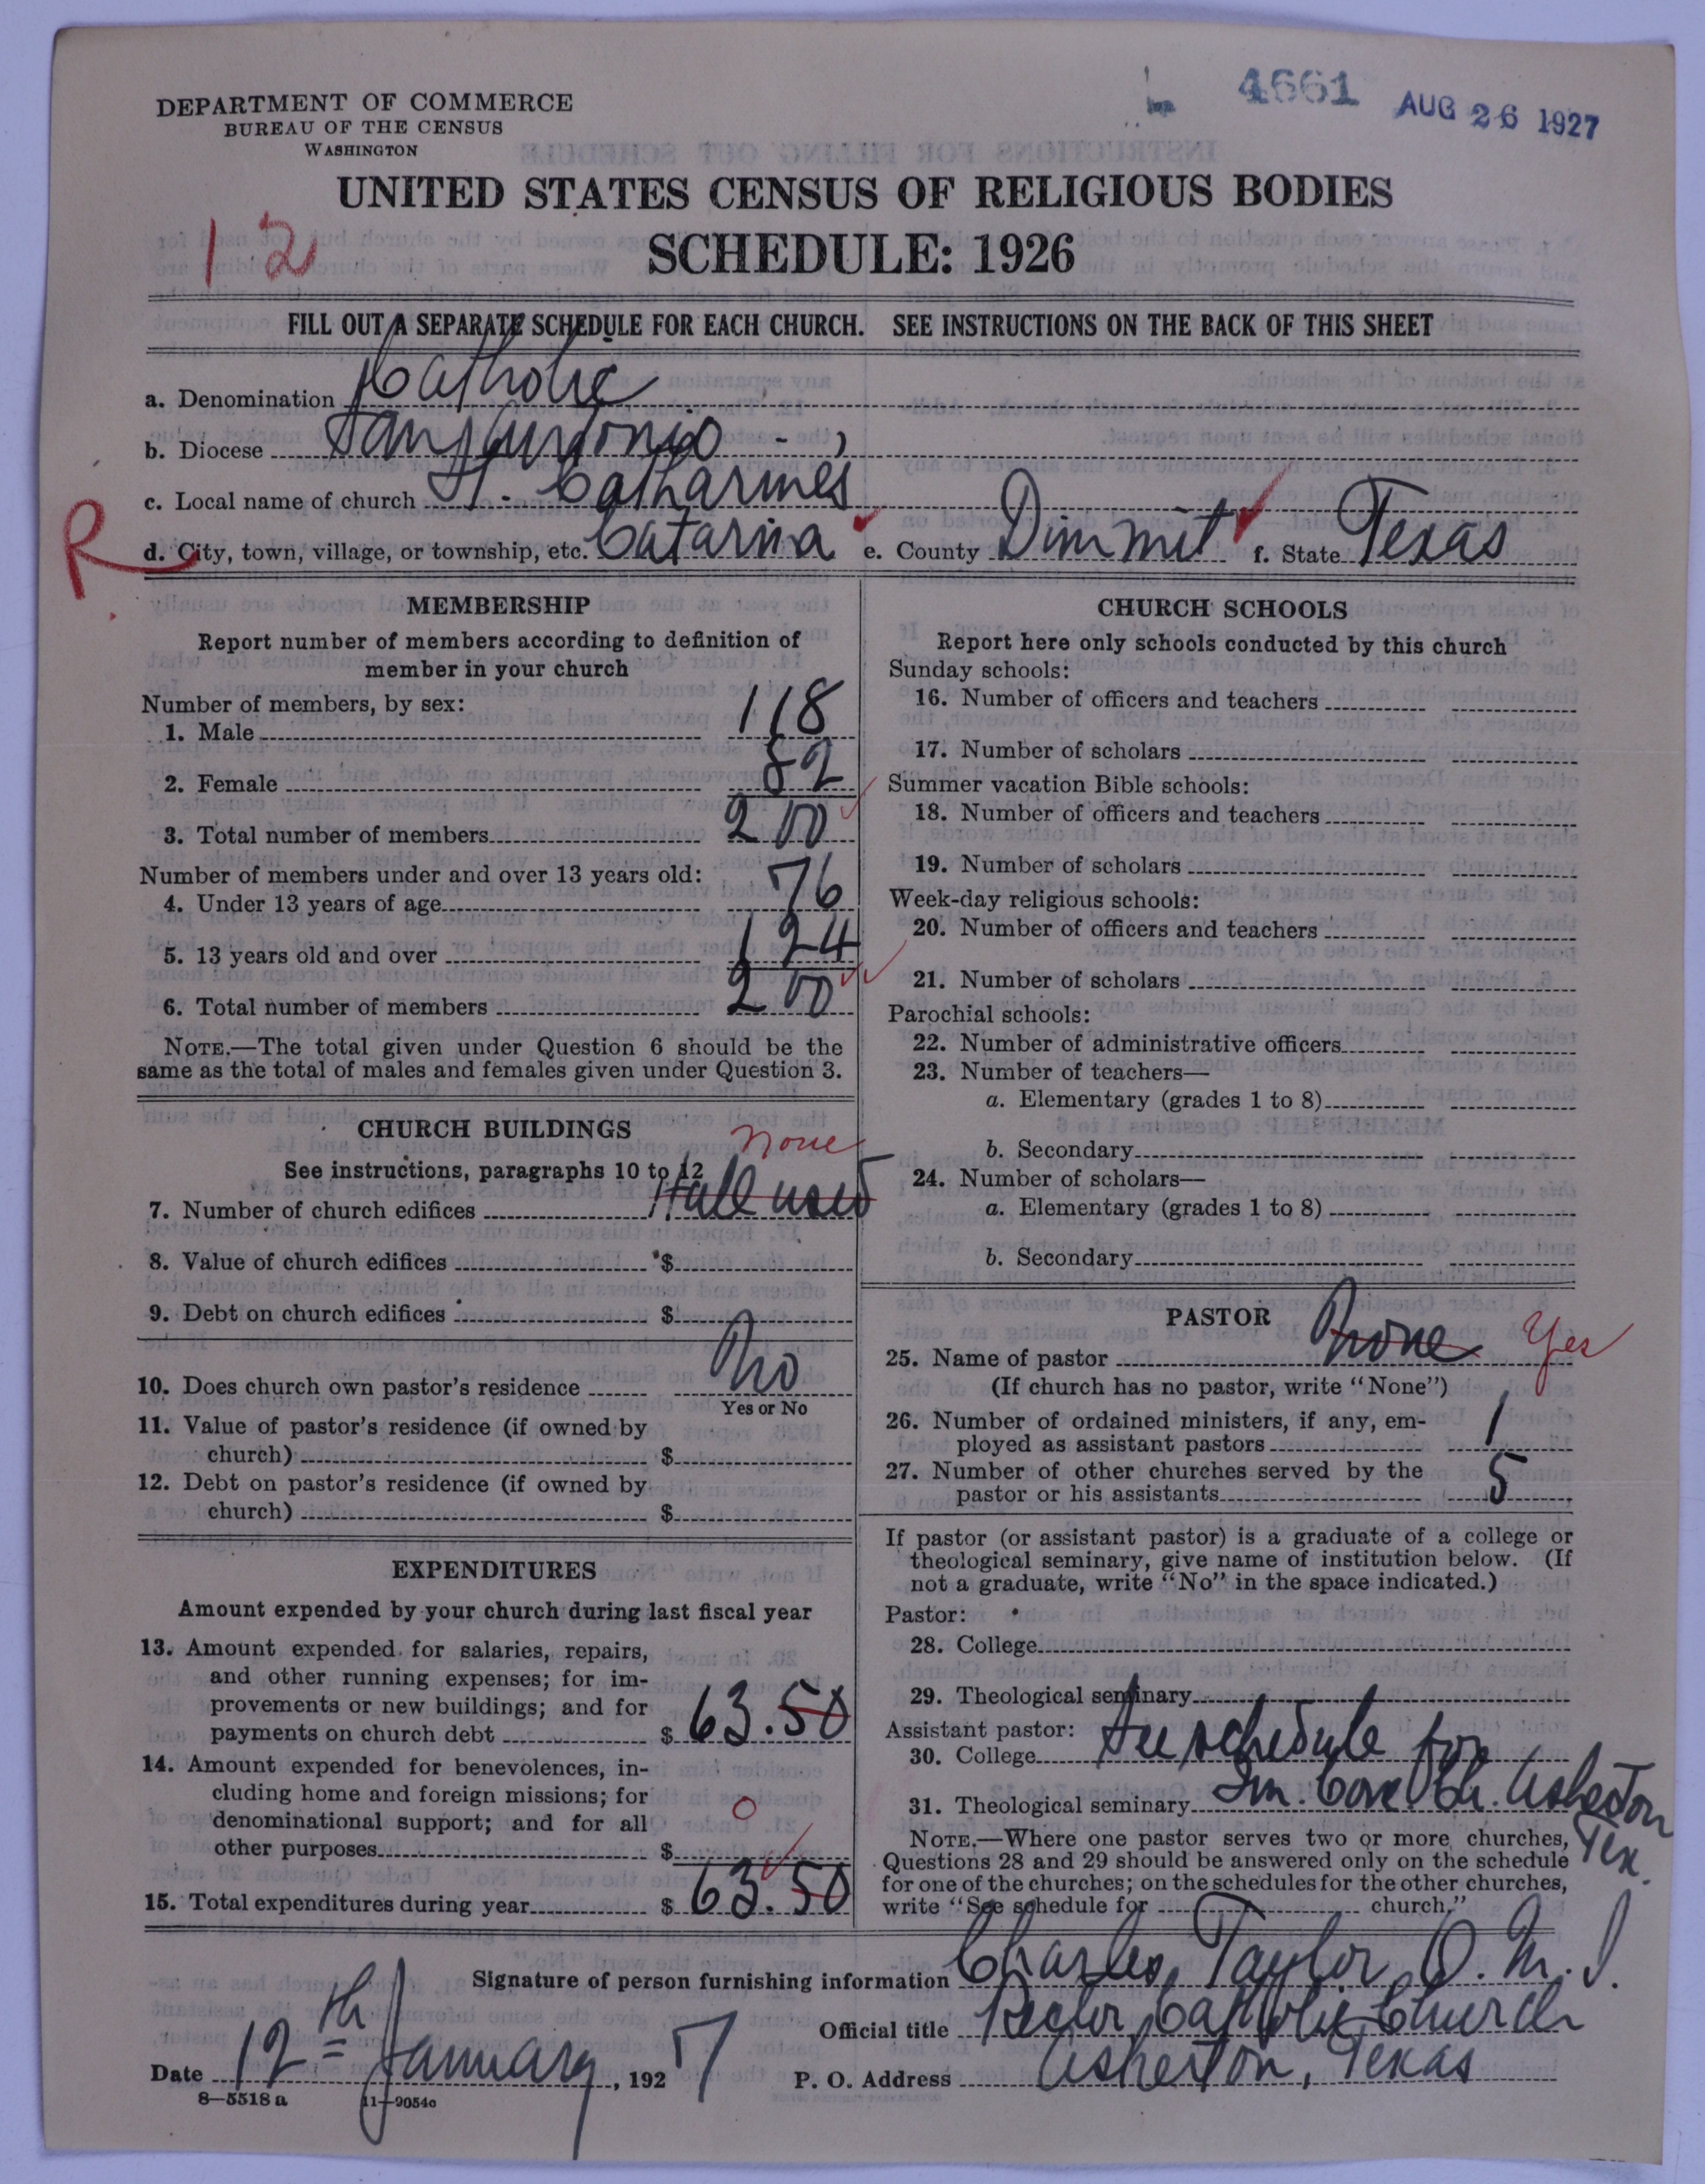 4661 AUG 26 1927
DEPARTMENT OF COMMERCE
BUREAU OF THE CENSUS
WASHINGTON
UNITED STATES CENSUS OF RELIGIOUS BODIES
12
SCHEDULE: 1926
FILL OUT A SEPARATE SCHEDULE FOR EACH CHURCH. SEE INSTRUCTIONS ON THE BACK OF THIS SHEET
a. Denomination Catholic
b. Diocese San Antonio
c. Local name of church St. Catharines
R
d. City, town, village, or township, etc. Catarina e. County Dimmit f. State Texas
MEMBERSHIP
Report number of members according to definition of
member in your church
Number of members, by sex:
1. Male 118
2. Female 82
3. Total number of members 200
Number of members under and over 13 years old:
4. Under 13 years of age 76
5. 13 years old and over 124
6. Total number of members 200
NOTE.—The total given under Question 6 should be the
same as the total of males and females given under Question 3.
CHURCH BUILDINGS
none
See instructions, paragraphs 10 to 12
7. Number of church edifices Hall used
8. Value of church edifices $
9. Debt on church edifices $
10. Does church own pastor's residence No
Yes or No
11. Value of pastor's residence (if owned by
church) $
12. Debt on pastor's residence (if owned by
church) $
EXPENDITURES
Amount expended by your church during last fiscal year
13. Amount expended for salaries, repairs,
and other running expenses; for im-
provements or new buildings; and for
payments on church debt $ 63.50
14. Amount expended for benevolences, in-
cluding home and foreign missions; for
denominational support; and for all
other purposes $ 0
15. Total expenditures during year $ 63.50
CHURCH SCHOOLS
Report here only schools conducted by this church
Sunday schools:
16. Number of officers and teachers
17. Number of scholars
Summer vacation Bible schools:
18. Number of officers and teachers
19. Number of scholars
Week-day religious schools:
20. Number of officers and teachers
21. Number of scholars
Parochial schools:
22. Number of administrative officers
23. Number of teachers—
a. Elementary (grades 1 to 8)
b. Secondary
24. Number of scholars—
a. Elementary (grades 1 to 8)
b. Secondary
PASTOR
25. Name of pastor None Yes
(If church has no pastor, write "None")
26. Number of ordained ministers, if any, em-
ployed as assistant pastors 1
27. Number of other churches served by the
pastor or his assistants 5
If pastor (or assistant pastor) is a graduate of a college or
theological seminary, give name of institution below. (If
not a graduate, write "No" in the space indicated.)
Pastor:
28. College
29. Theological seminary
Assistant pastor:
30. College See schedule for
31. Theological seminary Im. Conc. Ch. Asherton
Tex.
NOTE.—Where one pastor serves two or more churches,
Questions 28 and 29 should be answered only on the schedule
for one of the churches; on the schedules for the other churches,
write "See schedule for church."
Signature of person furnishing information Charles Taylor O.M.I.
Official title Rector Catholic Church
Date 12th January, 1927 P. O. Address Asherton, Texas
8—5518 a 11—9054c